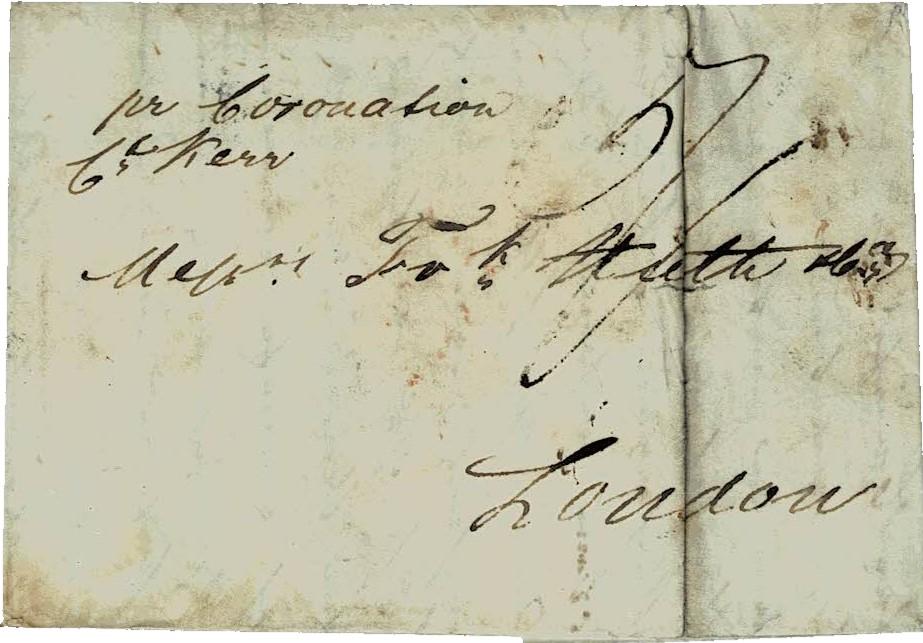 pr Coronation
Cn Kerr
Messrs. Fk Huth & Co
London